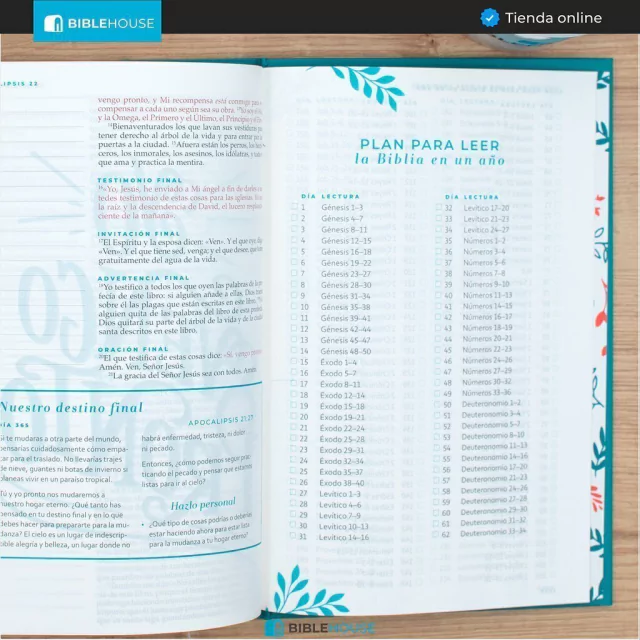 BIBLEHOUSE
Tienda online
LIPSIS 22
vengo pronto, y Mi recompensa está conmigo para
compensar a cada uno según sea su obra.
y la Omega, el Primero y el Último, el Principio y el
Bienaventurados los que lavan sus vestiduras
tener derecho al árbol de la vida y para entrar
puertas a la ciudad. Afuera están los perros, los
ceros, los inmorales, los asesinos, los idólatras, y
que ama y practica la mentira.
TESTIMONIO FINAL
«Yo, Jesús, he enviado a Mi ángel a fin de
tedes testimonio de estas cosas para las iglesias.
la raíz y la descendencia de David, el lucero
ciente de la mañana».
INVITACIÓN FINAL
El Espíritu y la esposa dicen: «Ven». Y el que oye,
«Ven». Y el que tiene sed, venga; y el que desea, que
gratuitamente del agua de la vida.
ADVERTENCIA FINAL
Yo testifico a todos los que oyen las palabras de la
fecía de este libro: si alguien añade a ellas, Dios
sobre él las plagas que están escritas en este libro.
alguien quita de las palabras del libro de esta
Dios quitará su parte del árbol de la vida y de la
santa descritos en este libro.
ORACIÓN FINAL
El que testifica de estas cosas dice: «Sí, vengo
Amén. Ven, Señor Jesús.
La gracia del Señor Jesús sea con todos. Amén.
Nuestro destino final
ÍA 365
APOCALIPSIS 21:27
Si te mudaras a otra parte del mundo,
pensarías cuidadosamente cómo empa-
car para el traslado. No llevarías trajes
de nieve, guantes ni botas de invierno si
planeas vivir en un paraíso tropical.
Tú y yo pronto nos mudaremos a
nuestro hogar eterno. ¿Qué tanto has
pensado en tu destino final y en lo que
debes hacer para prepararte para la mu-
danza? El cielo es un lugar de indescrip-
tible alegría y belleza, un lugar donde no
habrá enfermedad, tristeza, ni dolor
ni pecado.
Entonces, ¿cómo podemos seguir prac-
ticando el pecado y pensar que estamos
listas para ir al cielo?
Hazlo personal
• ¿Qué tipo de cosas podrías o deberías
estar haciendo ahora para estar lista
para la mudanza a tu hogar eterno?
PLAN PARA LEER
la Biblia en un año
DÍA LECTURA
1 Génesis 1-3
2 Génesis 4-7
3 Génesis 8-11
4 Génesis 12-15
5 Génesis 16-18
6 Génesis 19-22
7 Génesis 23-27
8 Génesis 28-30
9 Génesis 31-34
10 Génesis 35-38
11 Génesis 39-41
12 Génesis 42-44
13 Génesis 45-47
14 Génesis 48-50
15 Éxodo 1-4
16 Éxodo 5-7
17 Éxodo 8-11
18 Éxodo 12-14
19 Éxodo 15-18
20 Éxodo 19-21
21 Éxodo 22-24
22 Éxodo 25-28
23 Éxodo 29-31
24 Éxodo 32-34
25 Éxodo 35-37
26 Éxodo 38-40
27 Levítico 1-3
28 Levítico 4-6
29 Levítico 7-9
30 Levítico 10-13
31 Levítico 14-16
DÍA LECTURA
32 Levítico 17-20
33 Levítico 21-23
34 Levítico 24-27
35 Números 1-2
36 Números 3-4
37 Números 5-6
38 Números 7-8
39 Números 9-10
40 Números 11-13
41 Números 14-15
42 Números 16-17
43 Números 18-19
44 Números 20-21
45 Números 22-23
46 Números 24-26
47 Números 27-29
48 Números 30-32
49 Números 33-36
50 Deuteronomio 1-2
51 Deuteronomio 3-4
52 Deuteronomio 5-7
53 Deuteronomio 8-10
54 Deuteronomio 11-13
55 Deuteronomio 14-16
56 Deuteronomio 17-20
57 Deuteronomio 21-23
58 Deuteronomio 24-26
59 Deuteronomio 27-28
60 Deuteronomio 29-30
61 Deuteronomio 31-32
62 Deuteronomio 33-34
BIBLEHOUSE